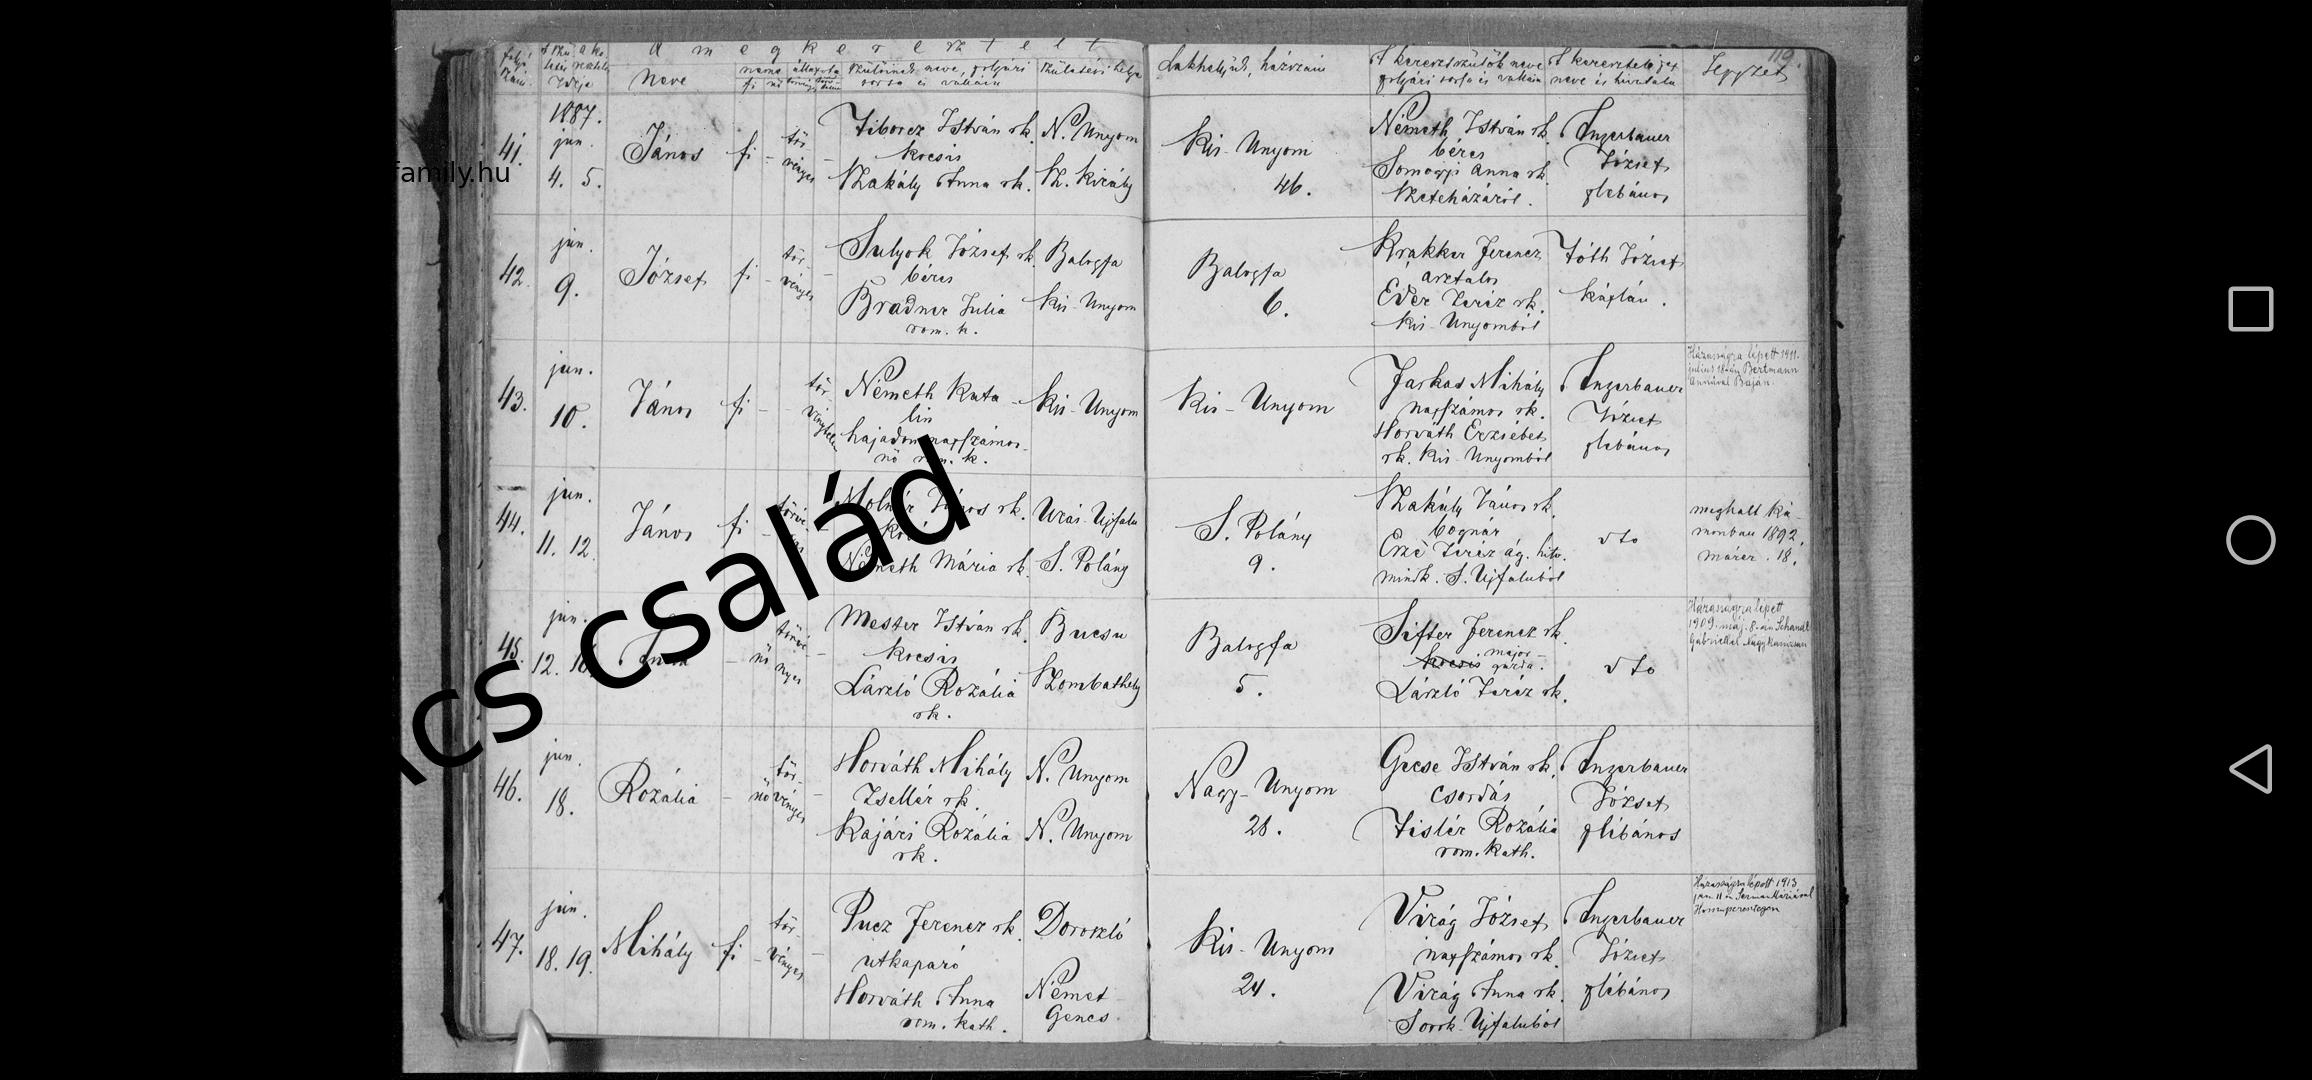 119.
a megkeresztelt
folyó szám
A szü- a ke-
letés resztelés
ideje
neve
neme
fi nő
állapota
szülőinek neve, polgári
sorsa és vallása
születési helye
Lakhelyük, házszám
A keresztszülők neve
polgári sorsa és vallása
A keresztelő pap
neve és hivatala
Jegyzet
1887.
41.
jun.
4. 5.
János
fi
tör-
vényes
Tiborcz István rk.
kocsis
Szakály Anna rk.
N. Unyom
Sz. Király
Kis-Unyom
46.
Németh István rk.
béres
Somogyi Anna rk.
Szeteházáról.
Inzerbauer
József
plébános
42.
jun.
9.
József
fi
tör-
vényes
Sulyok József rk.
béres
Bradner Julia
rom. k.
Balogfa
Kis-Unyom
Balogfa
6.
Krakker Ferencz
Eder Teréz rk.
Kis-Unyomból
Tóth József
káplán.
43.
jun.
10.
János
fi
tör-
vénytelen
Németh Kata-
lin
hajadon napszámos
nő rom. k.
Kis-Unyom
Kis-Unyom
Farkas Mihály
napszámos rk.
Horváth Erzsébet
rk. Kis-Unyomból
Inzerbauer
József
plébános
Házasságra lépett 1911.
julius 18-án Bertmann
Annával Baján.
44.
jun.
11. 12.
János
fi
törvé-
Molnár János rk.
Németh Mária rk.
Urai-Ujfalu
S. Polány
S. Polány
9.
Szakály János rk.
bognár
Teréz ág. hitv.
mindk. S. Ujfaluból
dto
meghalt Ká-
monban 1892.
márcz. 18.
45.
jun.
12. 16.
Anna
nő
törvé-
nyes
Mester István rk.
kocsis
László Rozália
rk.
Bucsu
Szombathely
Balogfa
5.
Sifter Ferencz rk.
kocsis major-
gazda.
László Teréz rk.
dto
Házasságra lépett
1909. maj. 8-án Schandl
Gabriellal Nagykanizsán
46.
jun.
18.
Rozália
nő
tör-
vényes
Horváth Mihály
zsellér rk.
Kajári Rozália
rk.
N. Unyom
N. Unyom
Nagy-Unyom
28.
Gecse István rk.
csordás
Tislér Rozália
rom. kath.
Inzerbauer
József
plébános
47.
jun.
18. 19.
Mihály
fi
tör-
vényes
Pucz Ferencz rk.
utkaparó
Horváth Anna
rom. kath.
Doroszló
Német-
Gencs
Kis-Unyom
24.
Virág József
napszámos rk.
Virág Anna rk.
Sorok-Ujfaluból
Inzerbauer
József
plébános
Házasságra lépett 1913.
jan. 11-én
family.hu
ics család